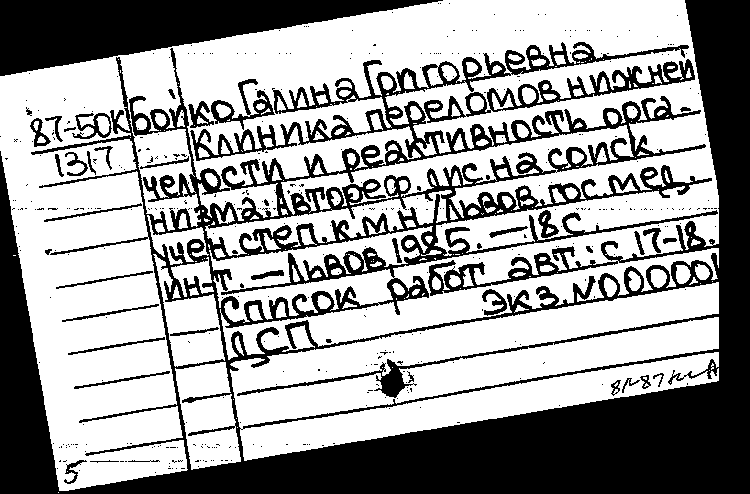 87-50К Бойко, Галина Григорьевна.
1317 Клиника переломов нижней
челюсти и реактивность орга-
низма: Автореф. дис. на соиск.
учен. степ. к.м.н. / Львов. гос. мед.
ин-т. — Львов 1985. — 18 с.
Список работ авт.: с. 17-18.
ДСП. Экз. N000001
5